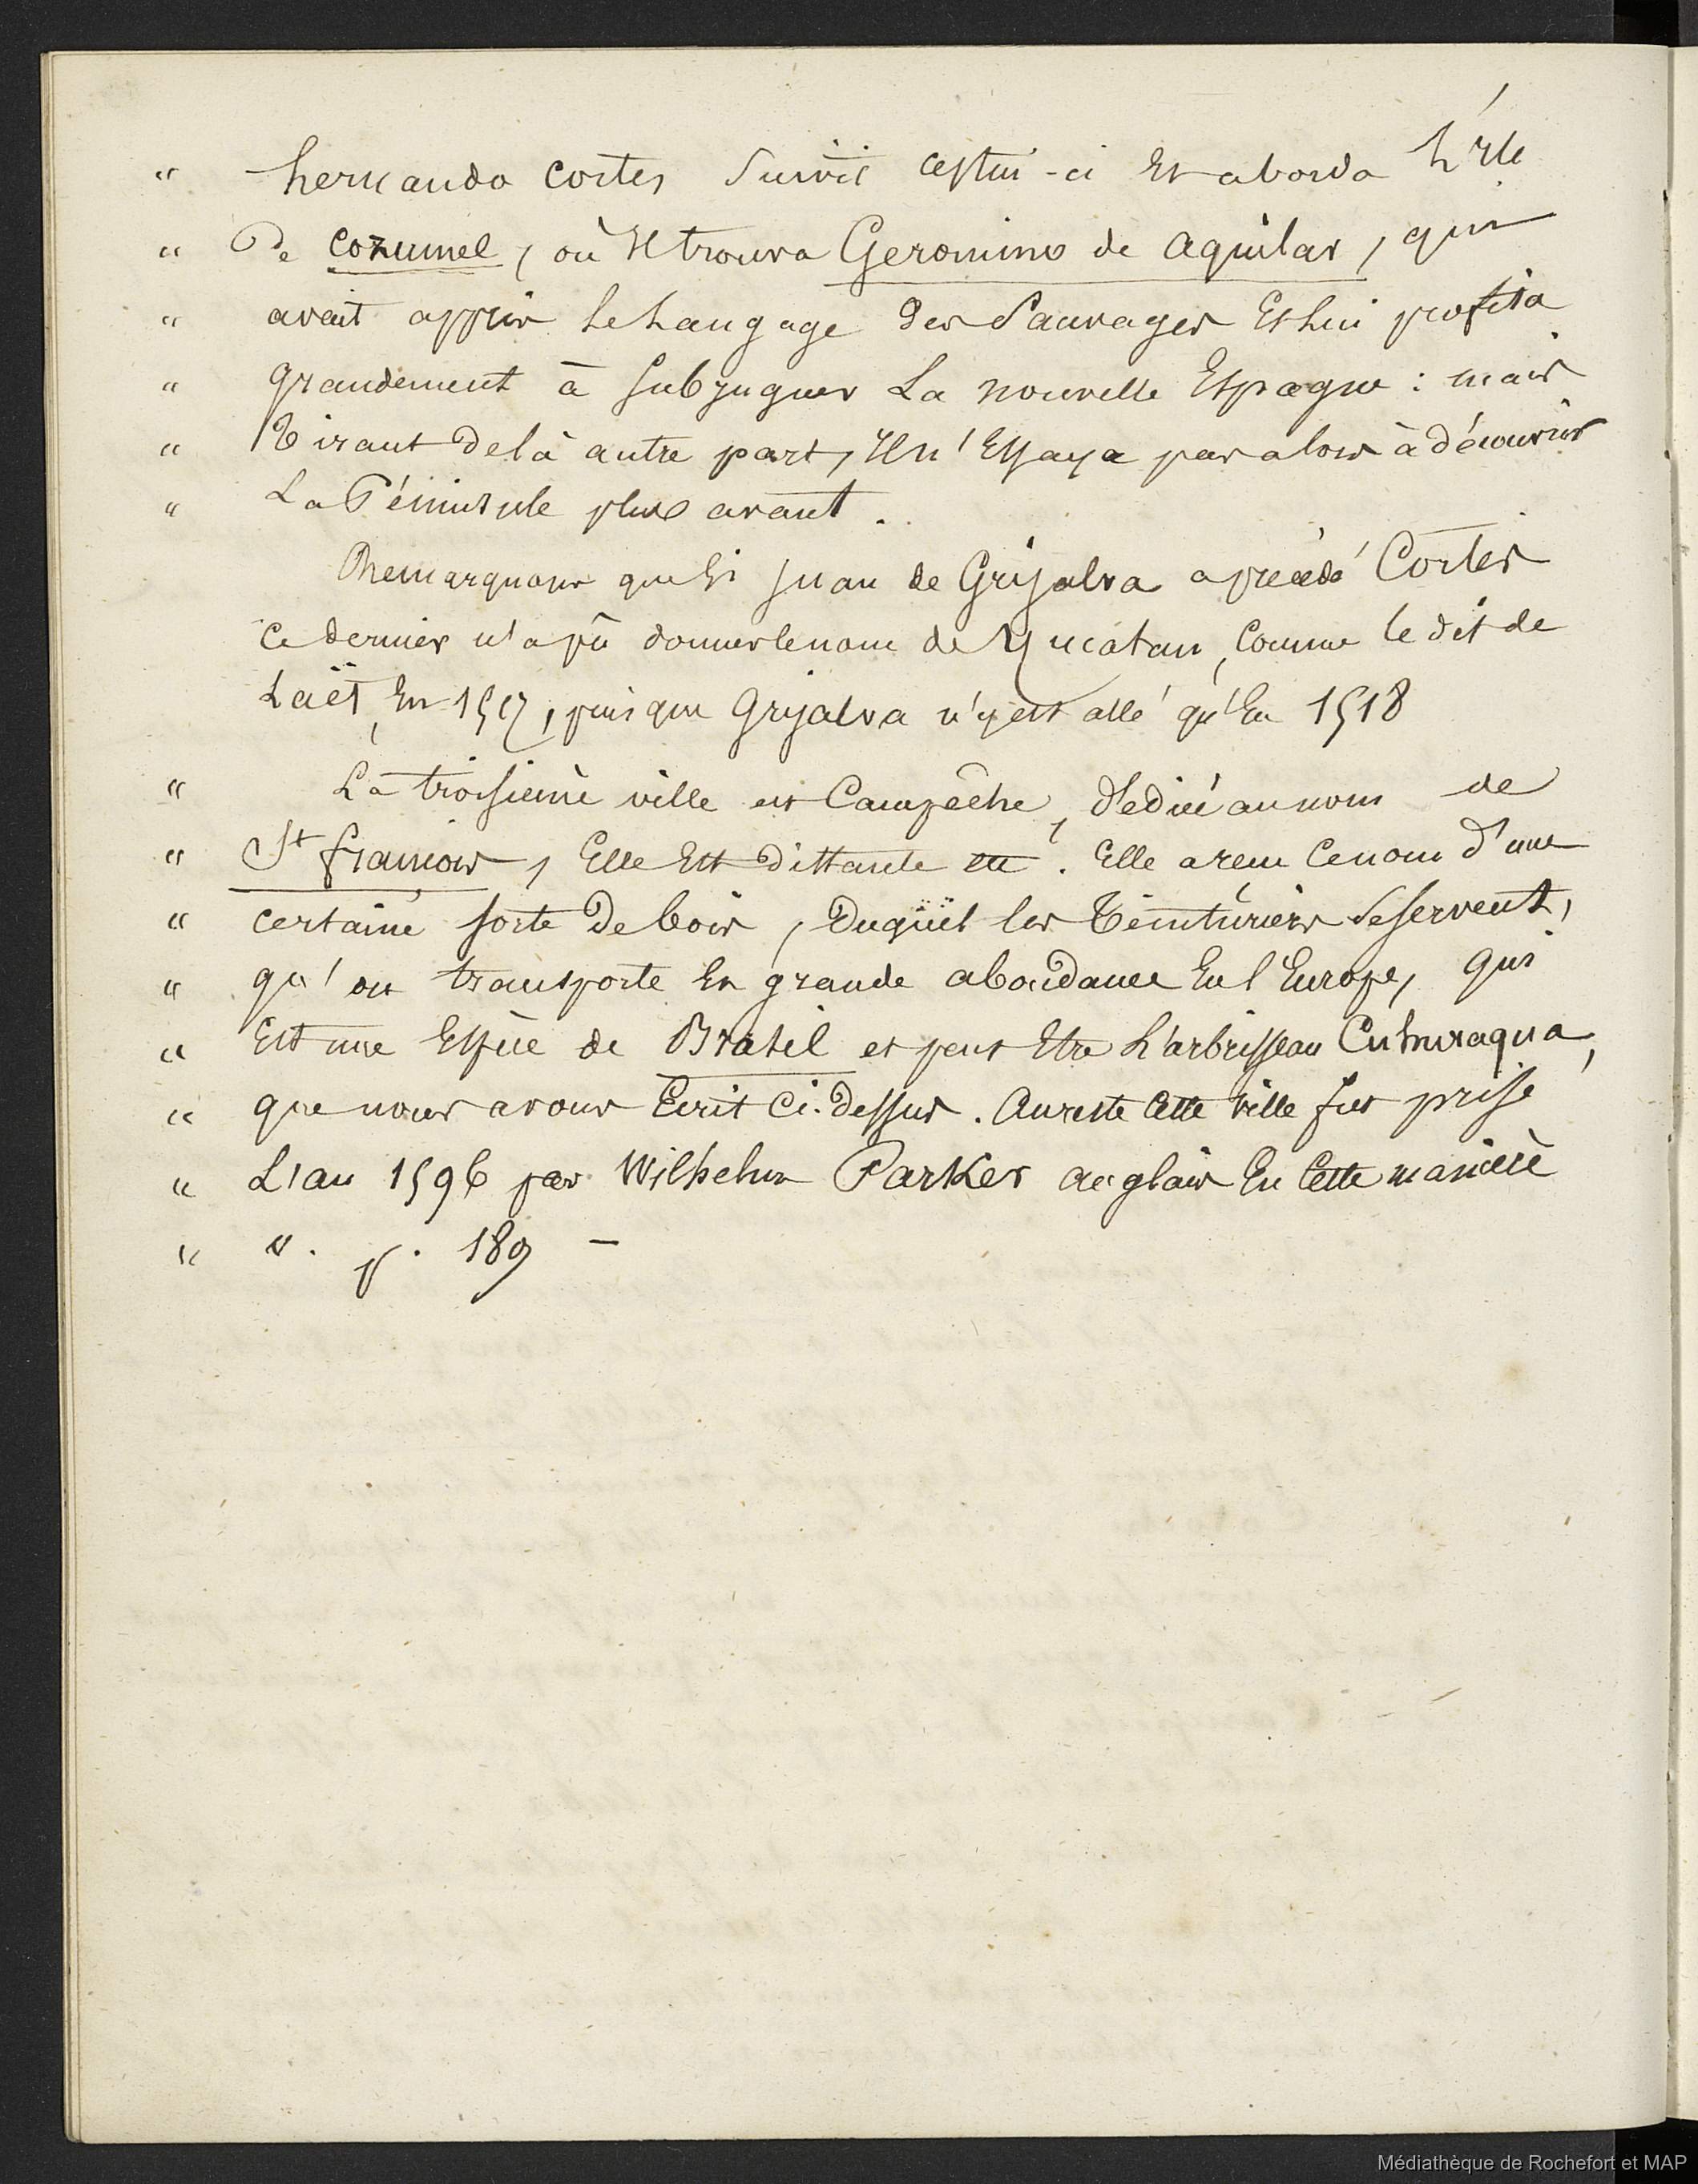 " hernando Cortes Suivit cestui-ci Et aborda L'Ile
" De Cozumel, où Il trouva Geronimo de Aquilar, qui
" avait appris Le Langage des Sauvages Et Lui profita
" grandement à Subjuguer La nouvelle Espagne : mais
" Tirant de là autre part, Il n'Essaya par alors à découvrir
" La Péninsule plus avant.
Remarquons que Si Juan de Grijalva a précédé Cortes
ce dernier n'a pû donner le nom de Yucatan, Comme le dit de
Laët, En 1517, puisque Grijalva n'y est allé qu'En 1518
" La troisieme ville est Campêche, dediée au nom de
" St francois, Elle Est Distante etc. Elle a reçu Ce nom d'une
" certaine sorte De bois, Duquel les Teinturiers Se servent,
" qu'on transporte En grande abondance En l'Europe, qui
" Est une Espèce de Brasil et peut Etre L'arbrisseau Cuhuraqua,
" que nous avons Ecrit Ci-dessus. Au reste Cette ville fut prise
" L'an 1596 par Wilhelm Parker anglais En Cette manière
" ". p. 189 –
Médiathèque de Rochefort et MAP